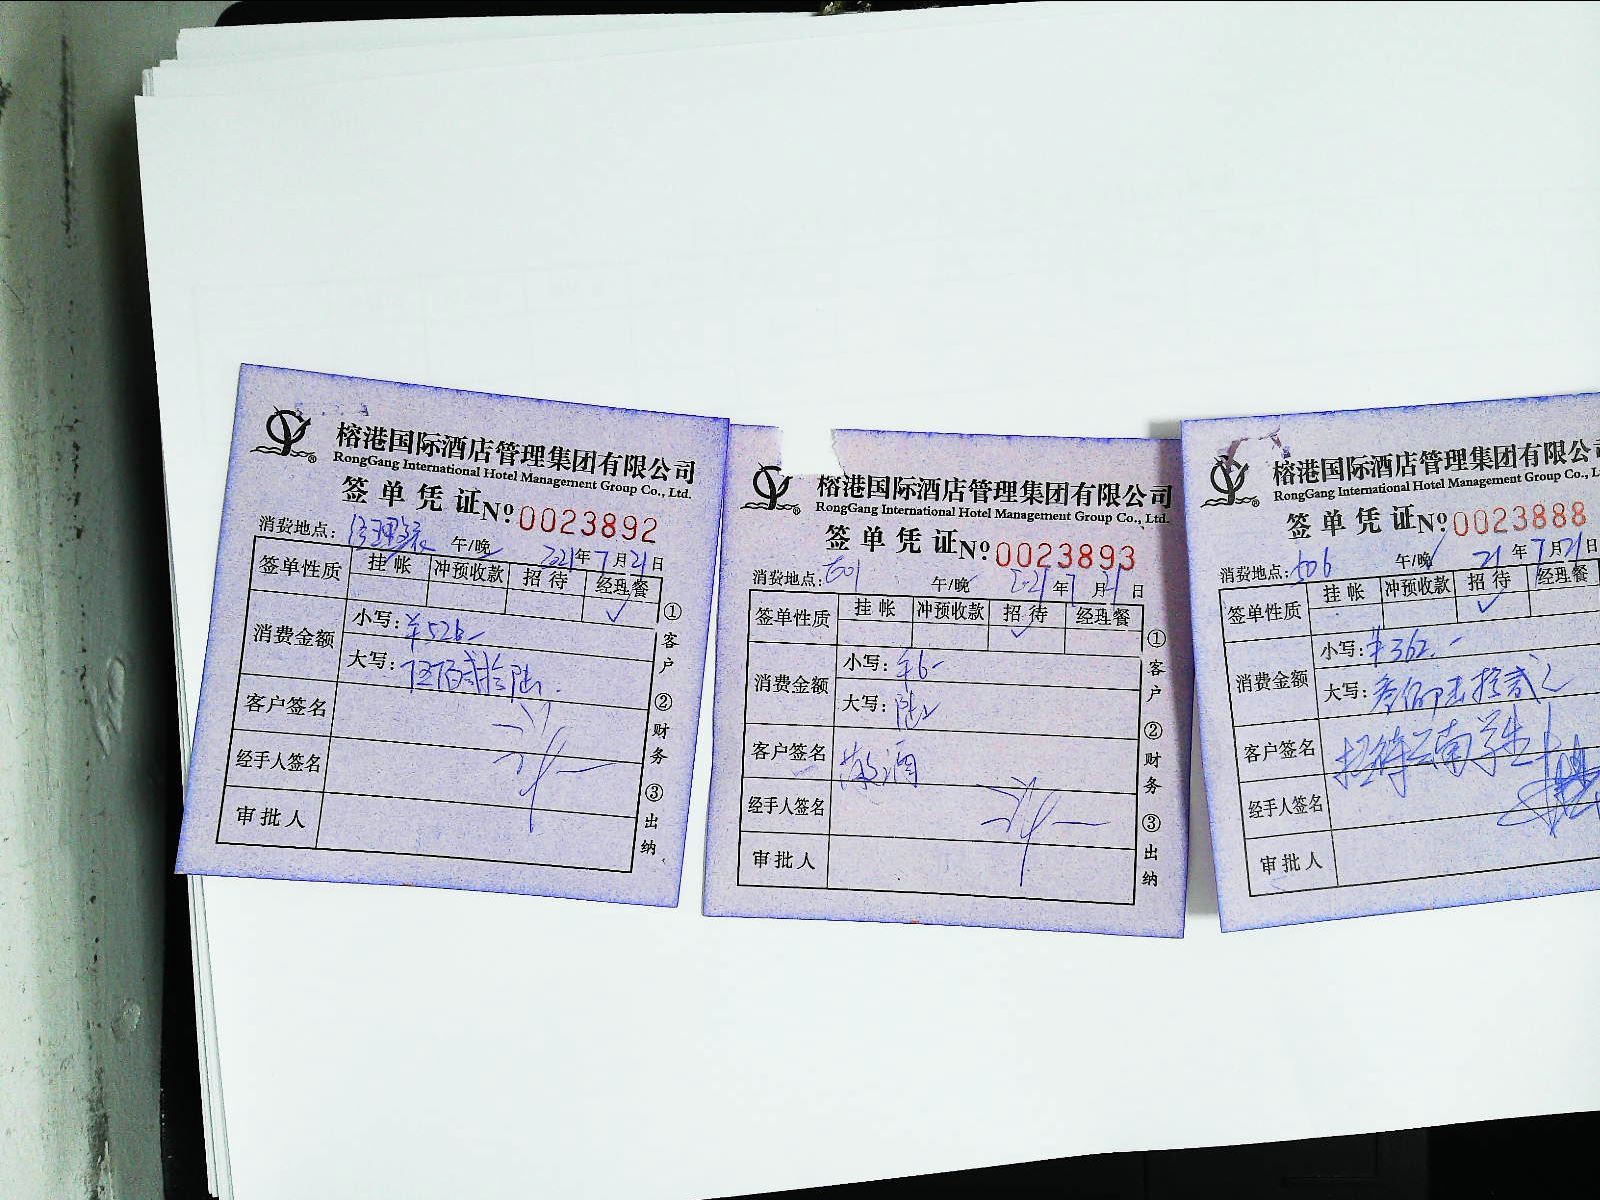 榕港国际酒店管理集团有限公司
RongGang International Hotel Management Group Co., Ltd.
签单凭证 №0023892
消费地点： 午/晚 2021年7月21日
签单性质 挂帐 冲预收款 招待 经理餐
✓
消费金额 小写：¥526—
大写：伍佰贰拾陆
客户签名
经手人签名
审批人
①客户 ②财务 ③出纳
榕港国际酒店管理集团有限公司
RongGang International Hotel Management Group Co., Ltd.
签单凭证 №0023893
消费地点： 午/晚 2021年7月21日
签单性质 挂帐 冲预收款 招待 经理餐
✓
消费金额 小写：¥6—
大写：陆
客户签名 散酒
经手人签名
审批人
①客户 ②财务 ③出纳
榕港国际酒店管理集团有限公司
RongGang International Hotel Management Group Co.,
签单凭证 №0023888
消费地点：606 午/晚✓ 21年7月21日
签单性质 挂帐 冲预收款 招待 经理餐
✓
消费金额 小写：¥362.—
大写：叁佰陆拾贰元
客户签名 招待云南学生
经手人签名
审批人